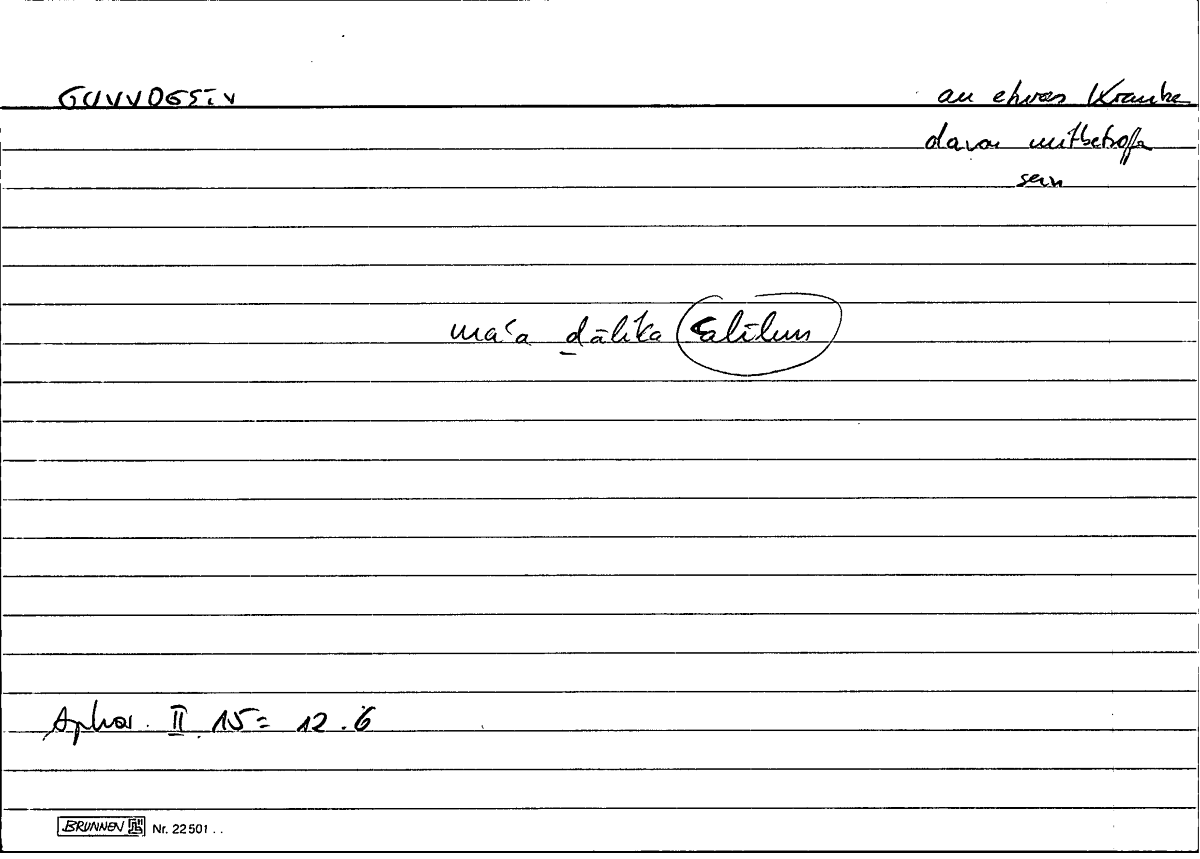 συννοσεῖν an etwas Kranke
davon mitbetroffen
sein
maʿa ḏālika ʿalīlun
Aphor. II 15 = 12.6
BRUNNEN Nr. 22501..